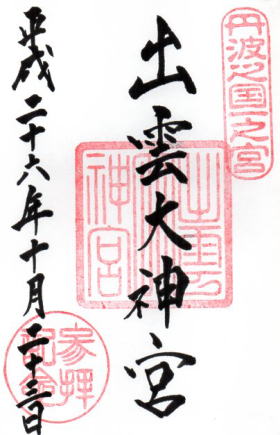 丹波之国一之宮
出雲大神宮
出雲大神宮
平成二十六年十月二十三日
参拝記念